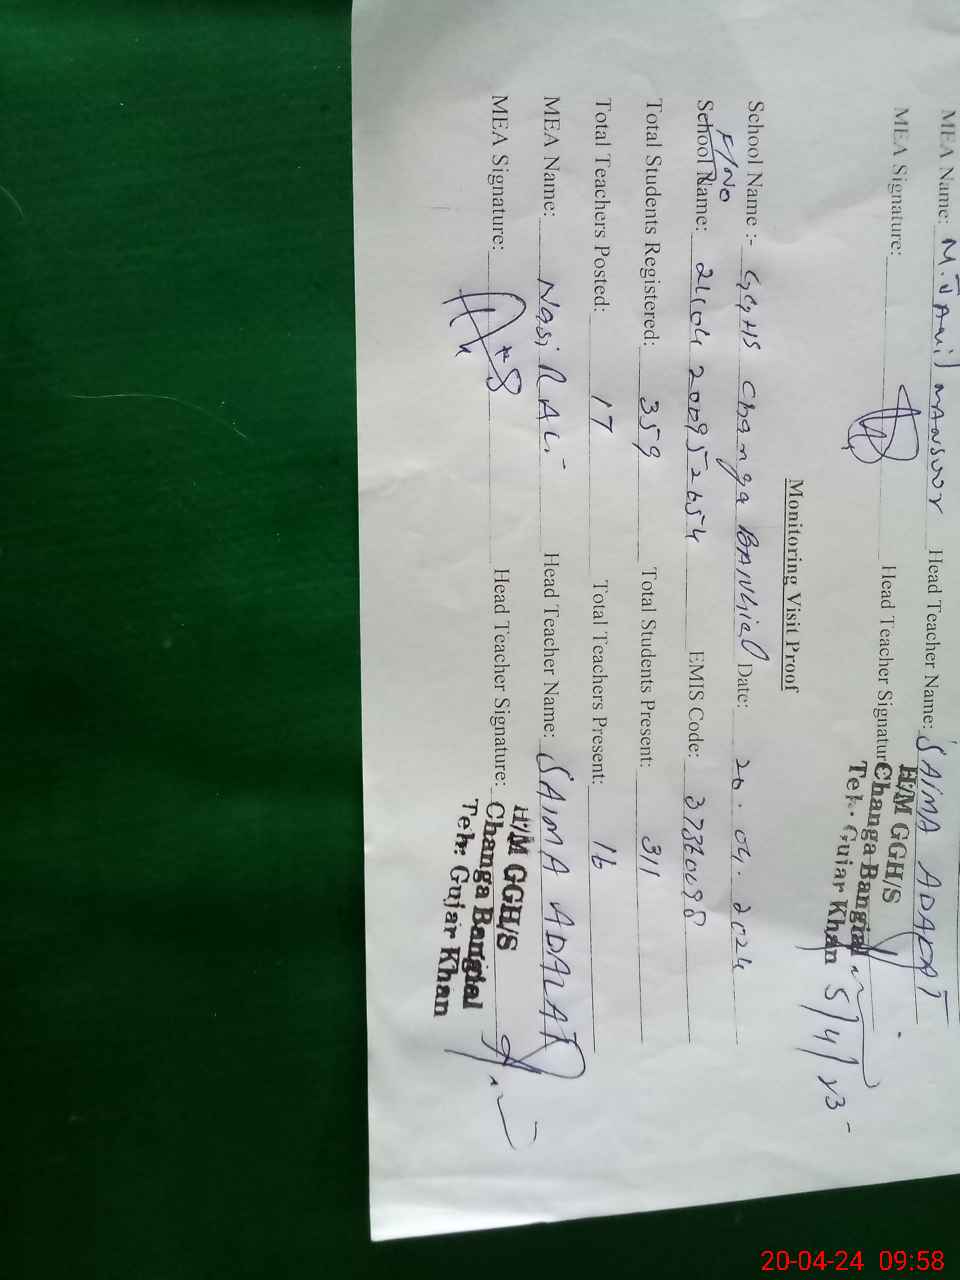 MEA Name: M. Jamil MANSOOR Head Teacher Name: SAIMA ADALAT
MEA Signature: Head Teacher Signature
H/M GGH/S
Changa Bangial
Teh. Gujar Khan 5/4/23
Monitoring Visit Proof
School Name :- GGHS Changa BANGial Date: 20.04.2024
F/NO
School Name: EMIS Code:
Total Students Registered: 359 Total Students Present: 311
Total Teachers Posted: 17 Total Teachers Present: 16
MEA Name: NasiR ALi Head Teacher Name: SAIMA ADALAT
MEA Signature: Head Teacher Signature:
H/M GGH/S
Changa Bangial
Teh: Gujar Khan
20-04-24 09:58